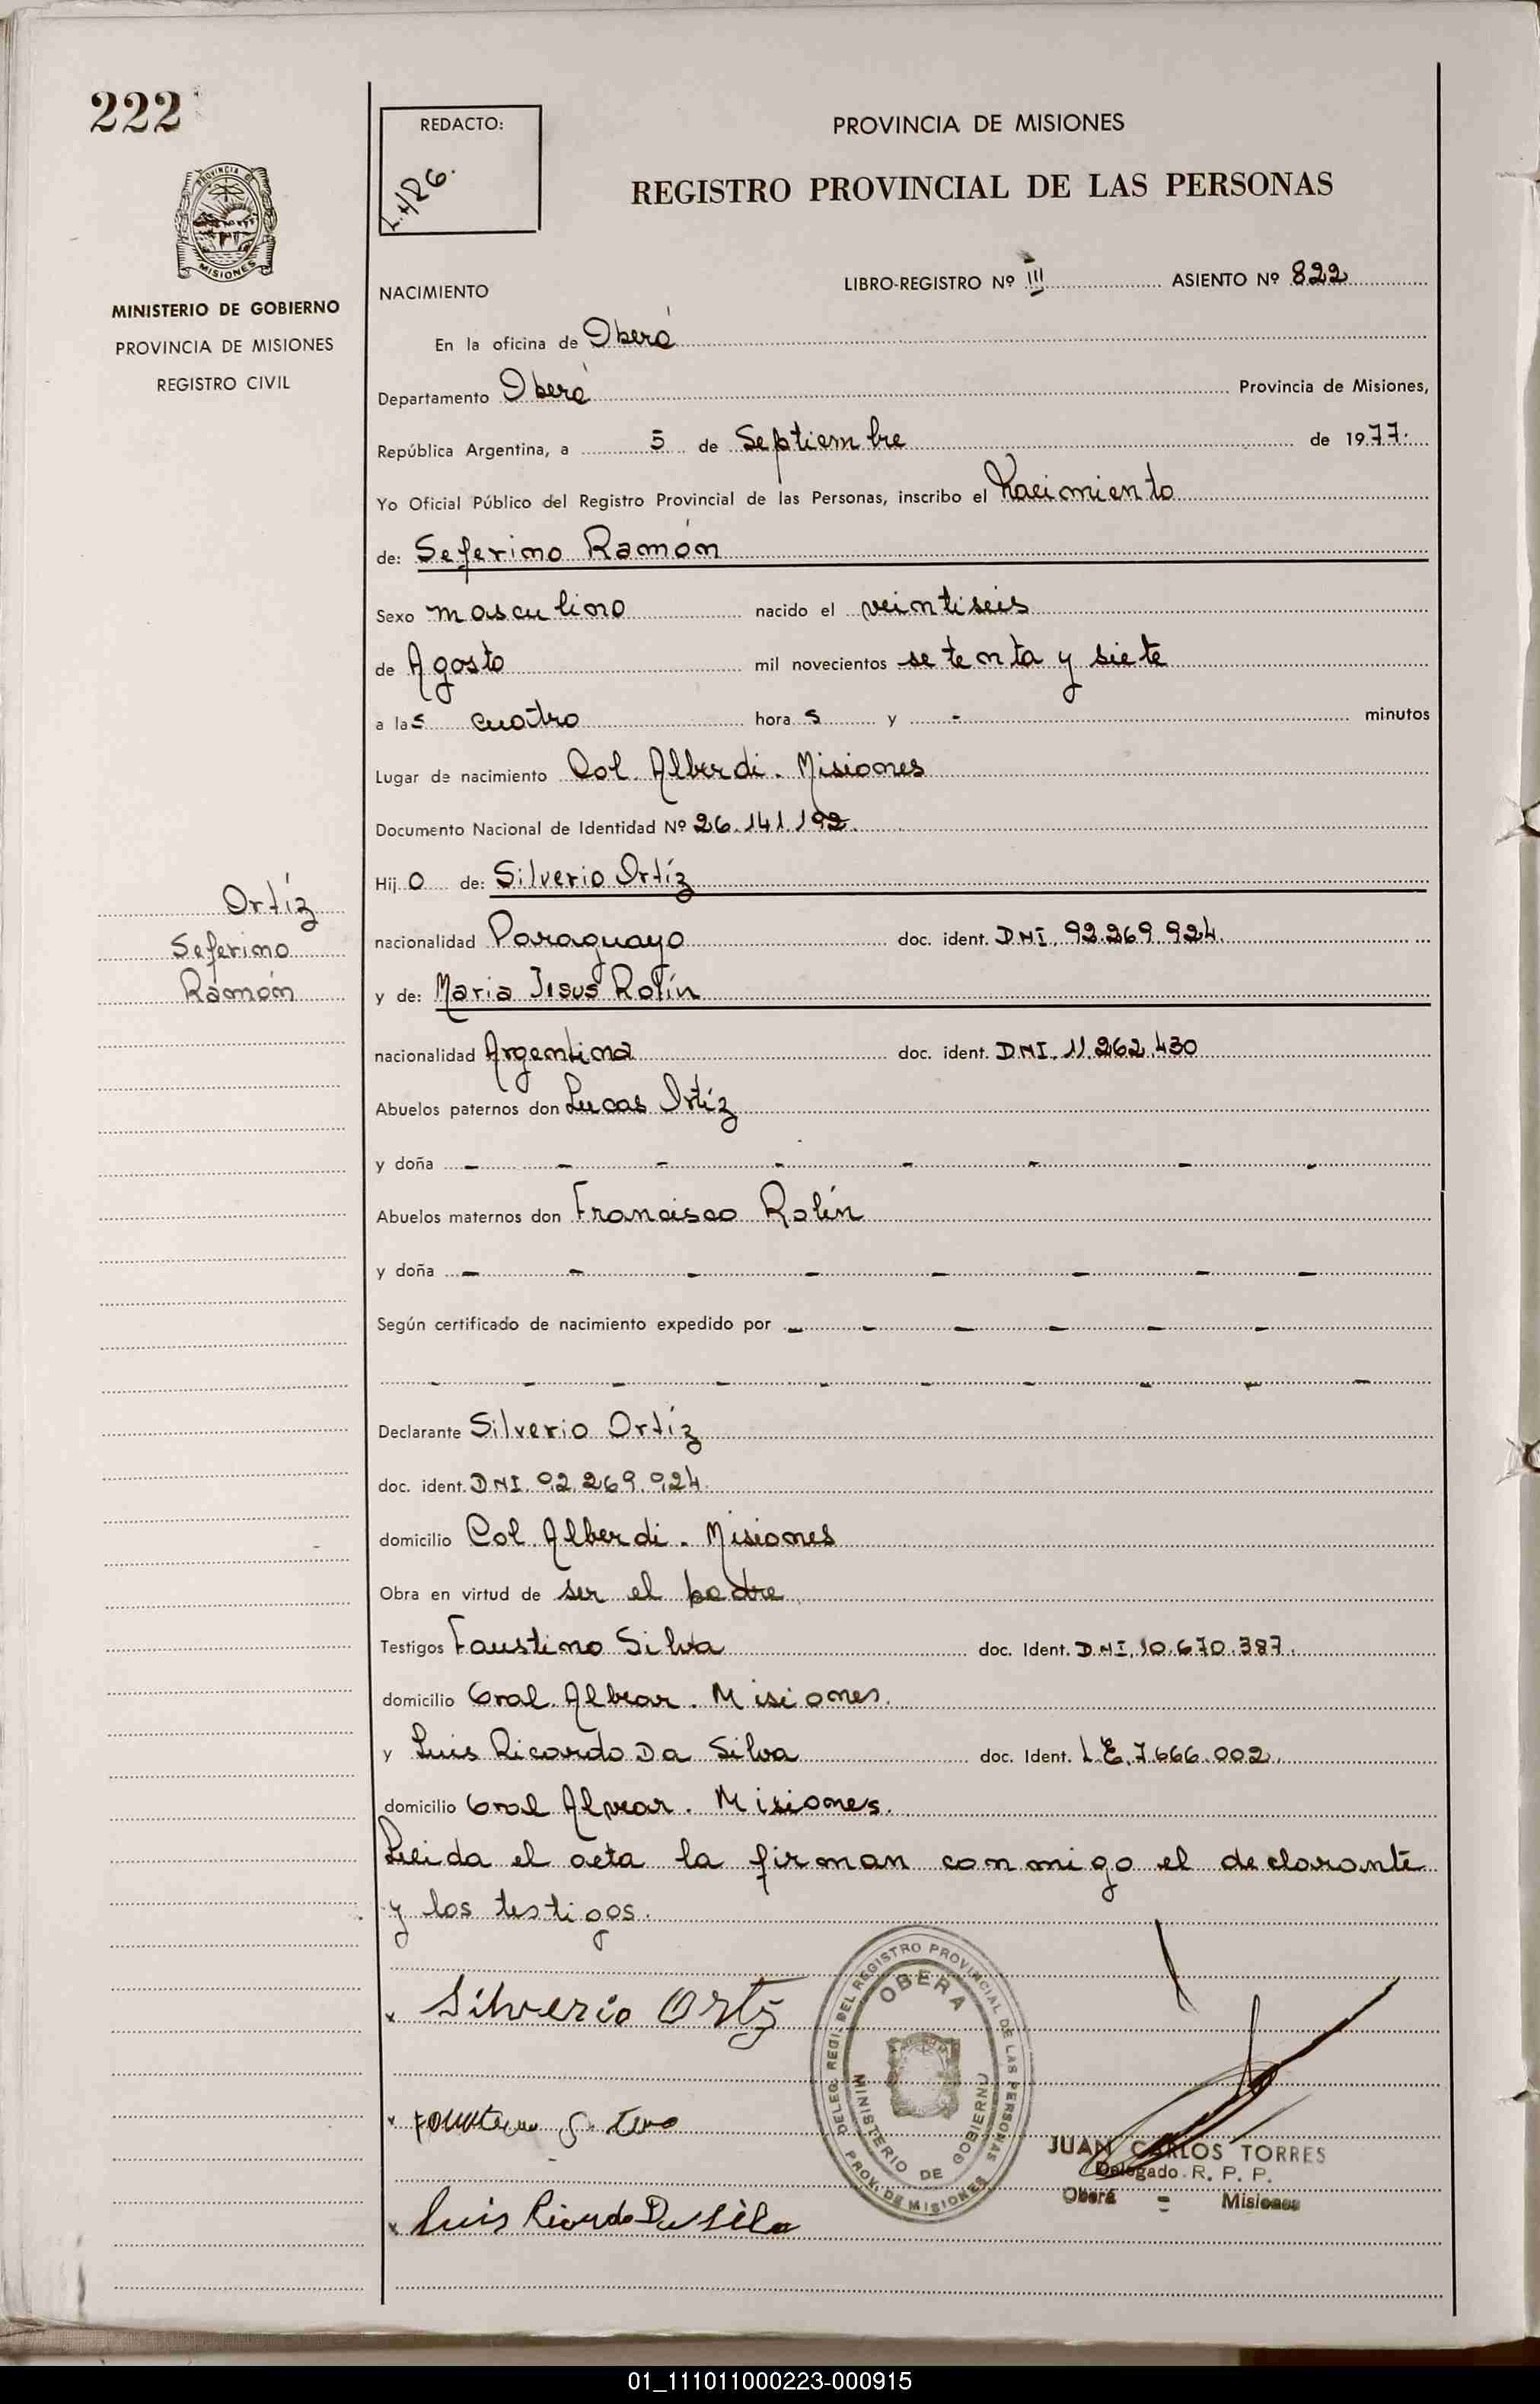 222
REDACTO:
PROVINCIA DE MISIONES
REGISTRO PROVINCIAL DE LAS PERSONAS
PROVINCIA DE
MISIONES
MINISTERIO DE GOBIERNO
PROVINCIA DE MISIONES
REGISTRO CIVIL
NACIMIENTO
LIBRO-REGISTRO Nº III ASIENTO Nº 822
En la oficina de Oberá
Departamento Oberá Provincia de Misiones,
República Argentina, a 5 de Septiembre de 1977.
Yo Oficial Público del Registro Provincial de las Personas, inscribo el Nacimiento
de: Seferino Ramón
Sexo masculino nacido el veintiseis
de Agosto mil novecientos setenta y siete
a las cuatro horas y - minutos
Lugar de nacimiento Col. Alberdi. Misiones
Documento Nacional de Identidad Nº 26.141.192.
Hijo de: Silverio Ortíz
Ortíz
Seferino
Ramón
nacionalidad Paraguayo doc. ident. DNI. 92.269.924.
y de: Maria Jesus Rolín
nacionalidad Argentina doc. ident. DNI. 11.262.430
Abuelos paternos don Lucas Ortíz
y doña - - - - - - - -
Abuelos maternos don Francisco Rolín
y doña - - - - - - - -
Según certificado de nacimiento expedido por - - - - - -
- - - - - - - - - -
Declarante Silverio Ortíz
doc. ident. DNI. 92.269.924.
domicilio Col. Alberdi. Misiones
Obra en virtud de ser el padre
Testigos Faustino Silva doc. Ident. DNI. 10.670.387.
domicilio Gral. Albear. Misiones.
y Luis Ricardo Da Silva doc. Ident. L.E. 7.666.002.
domicilio Gral Alvear. Misiones.
Leida el acta la firman conmigo el declarante
y los testigos.
DELEG. REGI. DEL REGISTRO PROVINCIAL DE LAS PERSONAS
OBERA
MINISTERIO DE GOBIERNO
PROV. DE MISIONES
x Silverio Ortiz
JUAN CARLOS TORRES
Delegado R. P. P.
Oberá - Misiones
x Luis Ricardo Da Silva
01_111011000223-000915